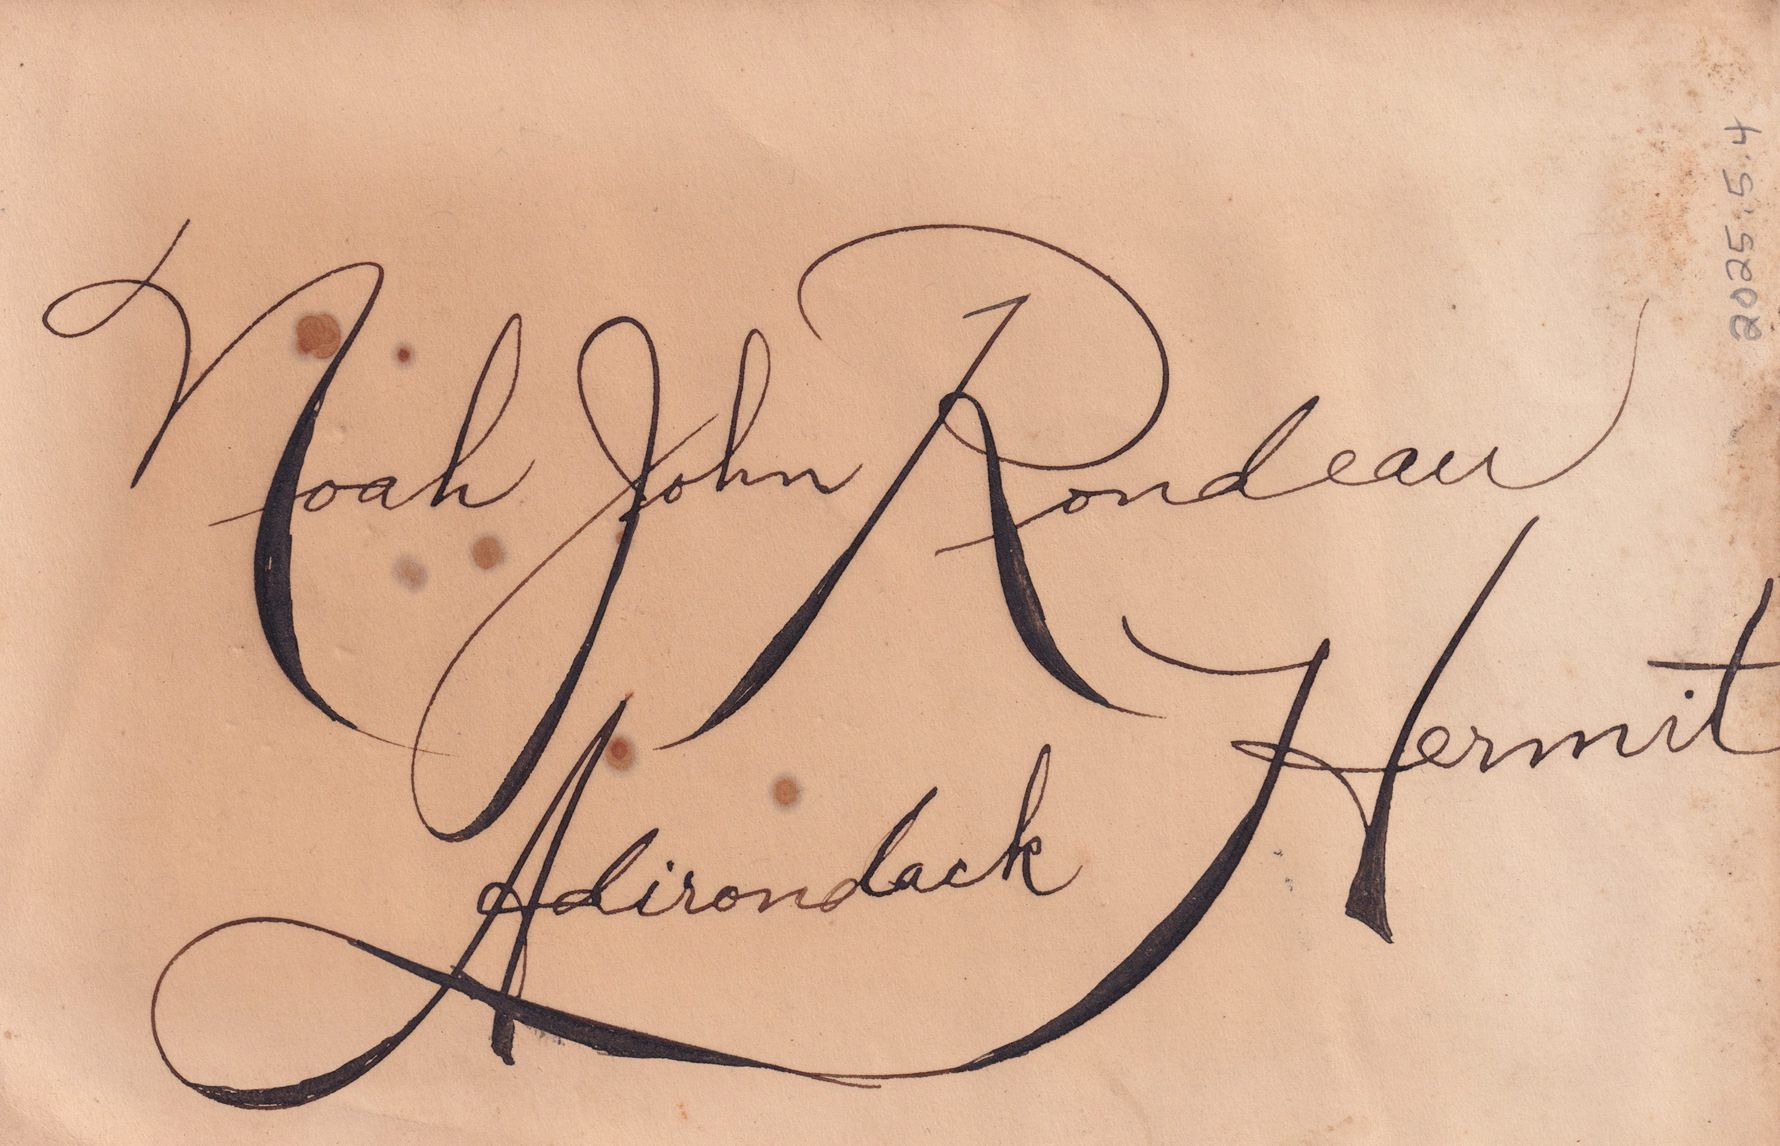 Noah John Rondeau
Adirondack Hermit
2025.5.4